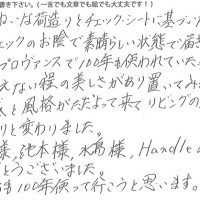 書き下さい。(一言でも文章でも絵でも大丈夫です!)
ねいな荷造りとチェックシートに基づい
ェックのお陰で素晴らしい状態で届き
プロヴァンスで100年も使われていた
えない程の美しさがあり置いてみ
と風格がただよって来てリビングの
りと変わりました。
様,池本様,水島様,Handle
とうございました。
も100年使って行こうと思います。